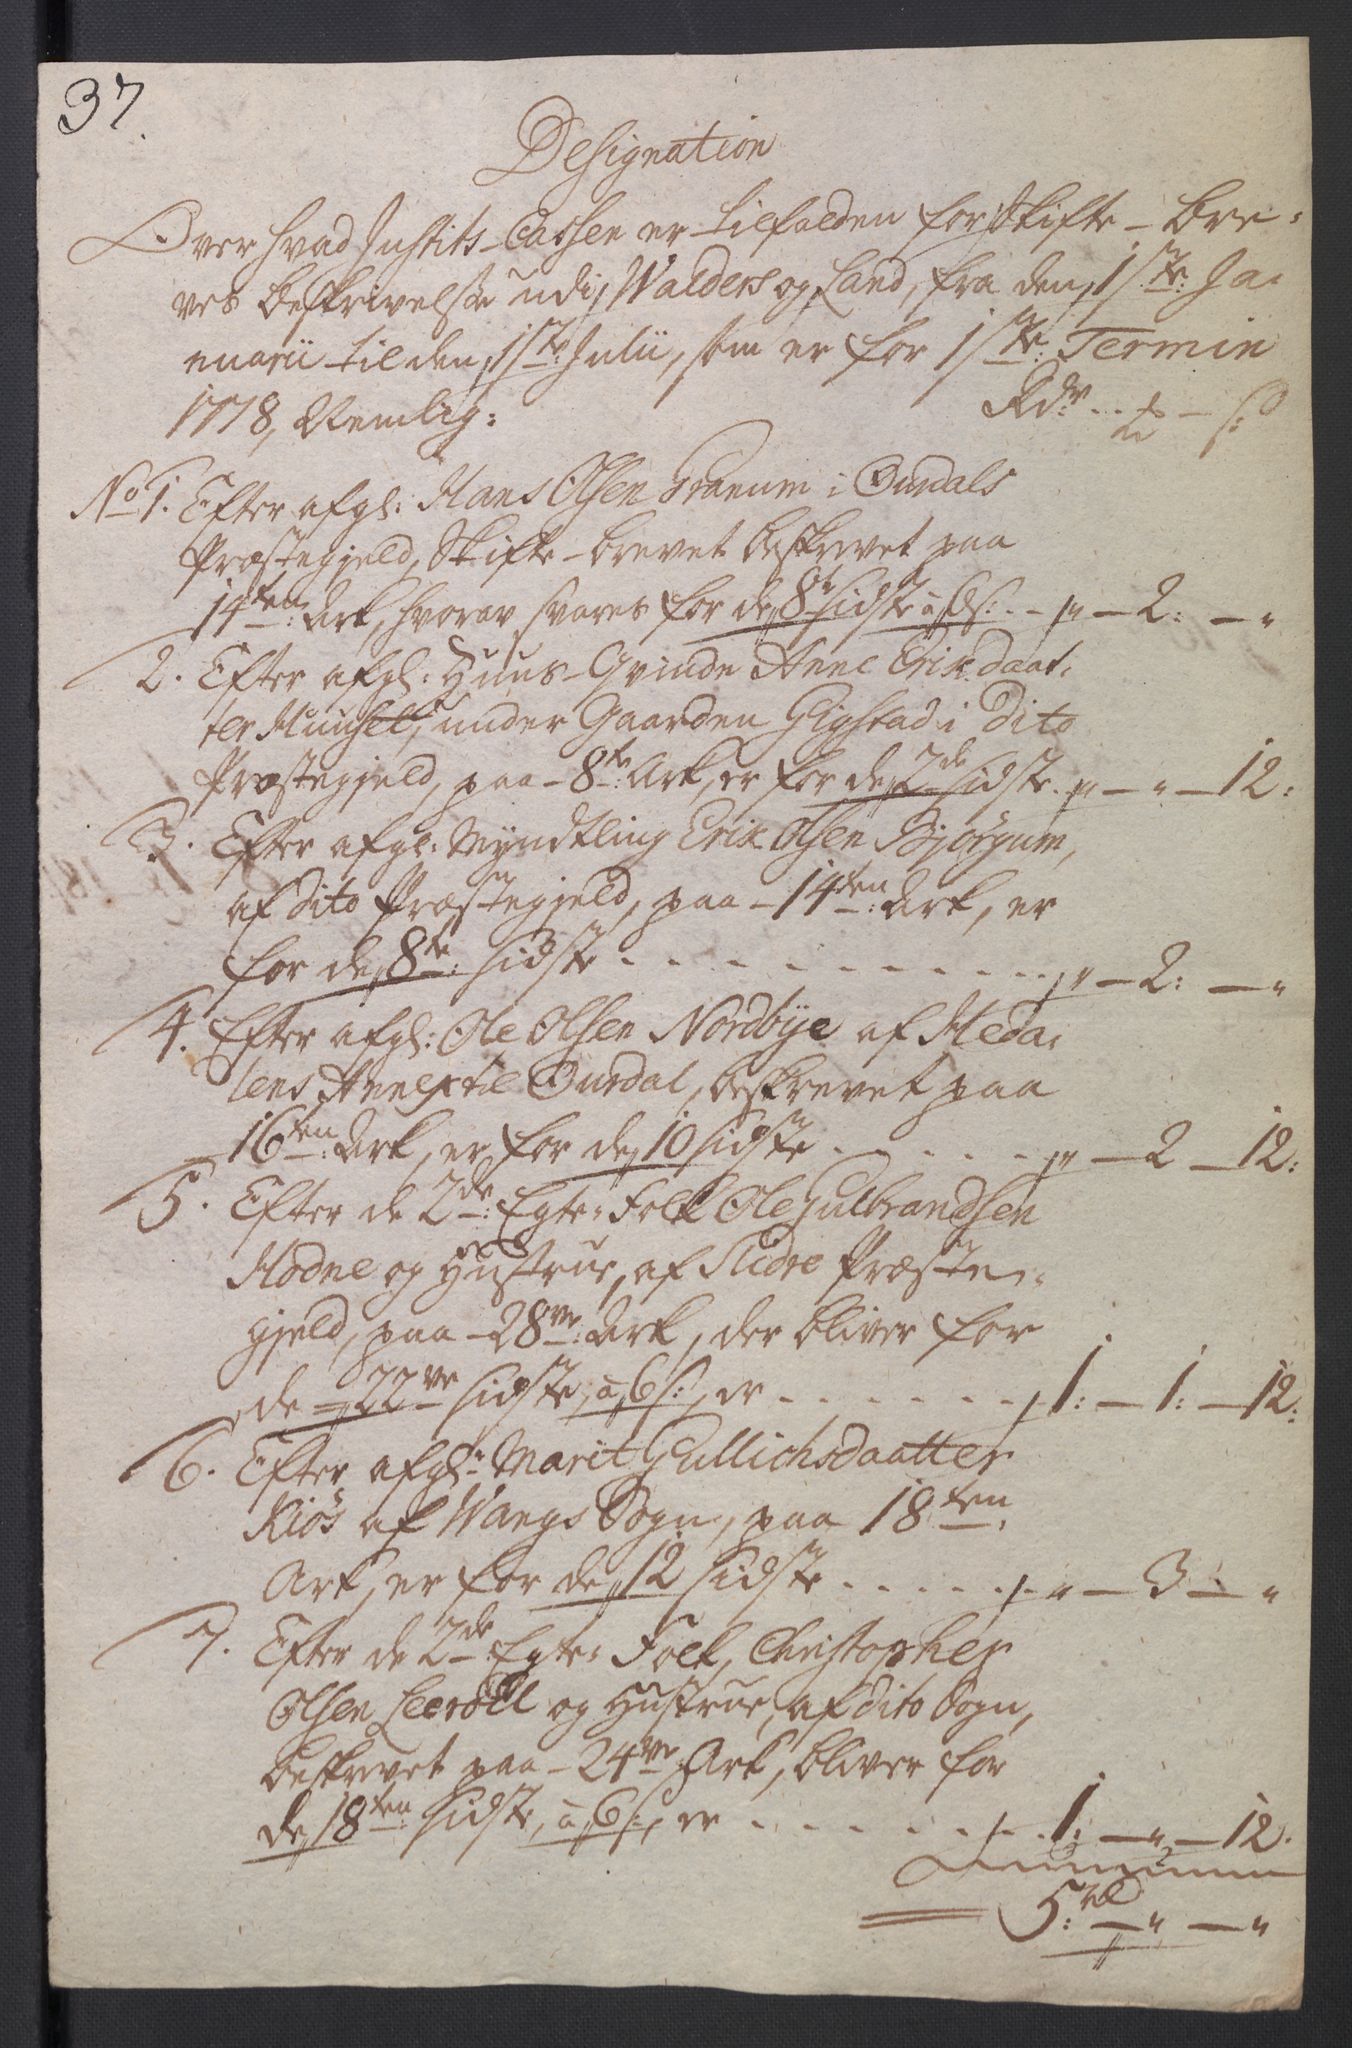 37.
Designation
Over hvad Justits-Cassen er tilfalden for Skifte-Bre-
ves Beskrivelse udi Walders og Land, fra den 1ste Ja-
nuarii til den 1ste Julii, som er for 1ste: Termin
1778, Nemlig:
Rdr .. ƶ — s:
No 1. Efter afgl: Hans Olsen Granum i Ourdals
Præstegjeld, Skifte-brevet beskrevet paa
14ten: Ark, hvorav svares for de 8te sidste a 6 s: . - „ — 2: — „
2. Efter afgl: Huus-Qvinde Anne Eriksdaat-
ter under Gaarden Gigstad i Dito
Præstegjeld, paa - 8te: Ark, er for de 2de sidste . „ — „ — 12:
3. Efter afgl: Myndtling Erik Olsen Bjørgum,
af dito Præstegjeld, paa - 14ten: Ark, er
for de 8te: sidste . . . . . . . . „ — 2: — „
4. Efter afgl: Ole Olsen Nordbÿe af Heda-
lens Annex til Ourdal, beskrevet paa
16ten: Ark, er for de 10 sidste . . . . . „ — 2 — 12:
5. Efter de 2de: Egte-Folk Ole Gulbrandsen
Hodne og Hustrue, af Slidre Præste-
gjeld, paa - 28ve: Ark, der bliver for
de 22ve sidste, a 6 s:, er . . . . . . 1: — 1: — 12:
6. Efter afgl: Marit Gullichsdaatter
Kiøs af Wangs Sogn, paa 18ten:
Ark, er for de 12 sidste . . . . . . „ — 3 — „
7. Efter de 2de Egte-Folk, Christopher
Olsen Leerøll og Hustrue, af dito Sogn,
beskrevet paa - 24ve Ark, bliver for
de 18ten sidste, a 6 s:, er . . . . . . 1: — „ — 12.
Summa
5: rd — „ — „